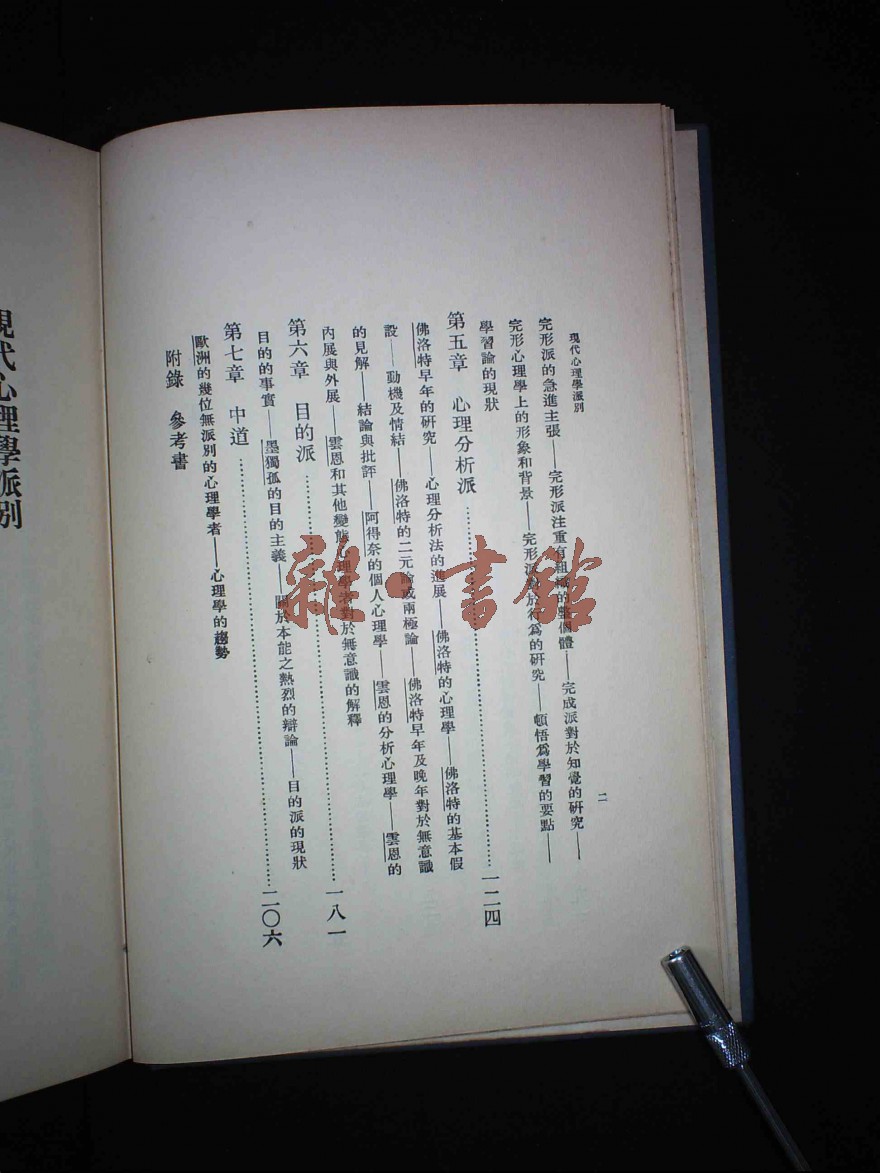 現代心理學派別
二
完形派的急進主張——完形派注重有組織的整個體——完成派對於知覺的研究——
完形心理學上的形象和背景——完形派對於行為的研究——頓悟為學習的要點——
學習論的現狀
第五章　心理分析派……一二四
佛洛特早年的研究——心理分析法的進展——佛洛特的心理學——佛洛特的基本假
設——動機及情結——佛洛特的二元論或兩極論——佛洛特早年及晚年對於無意識
的見解——結論與批評——阿得奈的個人心理學——雲恩的分析心理學——雲恩的
內展與外展——雲恩和其他變態心理學者對於無意識的解釋
第六章　目的派……一八一
目的的事實——墨獨孤的目的主義——關於本能之熱烈的辯論——目的派的現狀
第七章　中道……二〇六
歐洲的幾位無派別的心理學者——心理學的趨勢
附錄　參考書
現代心理學派別
雜·書館